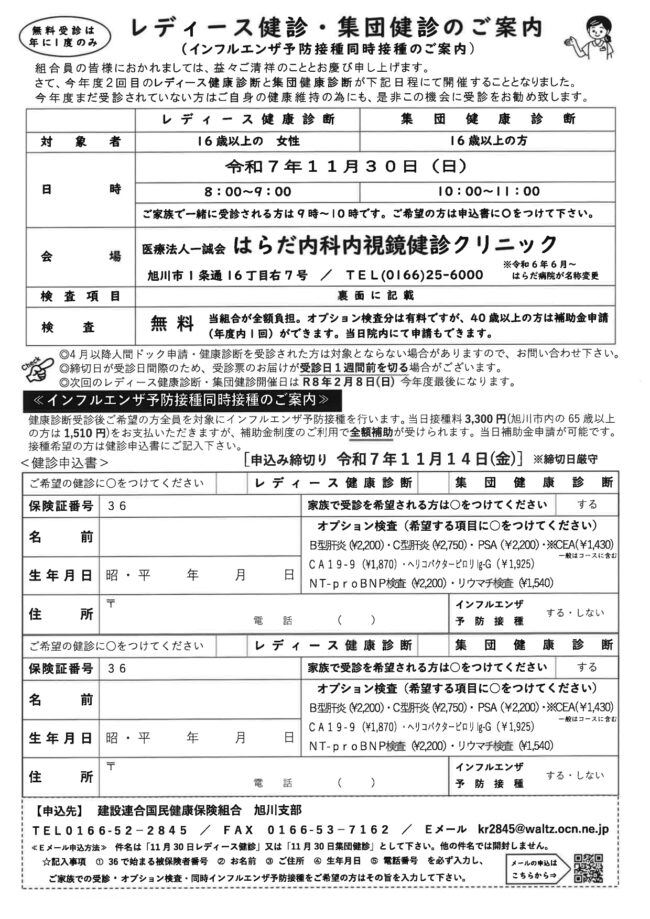 無料受診は
年に1度のみ
レディース健診・集団健診のご案内
(インフルエンザ予防接種同時接種のご案内)
組合員の皆様におかれましては、益々ご清祥のこととお慶び申し上げます。
さて、今年度2回目のレディース健康診断と集団健康診断が下記日程にて開催することとなりました。
今年度まだ受診されていない方はご自身の健康維持の為にも、是非この機会に受診をお勧め致します。
レディース健康診断 集団健康診断
対象者 16歳以上の 女性 16歳以上の方
日時 令和7年11月30日(日)
8:00〜9:00 10:00〜11:00
ご家族で一緒に受診される方は9時〜10時です。ご希望の方は申込書に〇をつけて下さい。
会場 医療法人一誠会 はらだ内科内視鏡健診クリニック
旭川市1条通16丁目右7号 / TEL(0166)25-6000 ※令和6年6月〜
はらだ病院が名称変更
検査項目 裏面に記載
検査 無料 当組合が全額負担。オプション検査分は有料ですが、40歳以上の方は補助金申請
(年度内1回)ができます。当日院内にて申請もできます。
Check
◎4月以降人間ドック申請・健康診断を受診された方は対象とならない場合がありますので、お問い合わせ下さい。
◎締切日が受診日間際のため、受診票のお届けが受診日1週間前を切る場合がございます。
◎次回のレディース健康診断・集団健診開催日はR8年2月8日(日) 今年度最後になります。
≪インフルエンザ予防接種同時接種のご案内≫
健康診断受診後ご希望の方全員を対象にインフルエンザ予防接種を行います。当日接種料3,300円(旭川市内の65歳以上
の方は1,510円)をお支払いただきますが、補助金制度のご利用で全額補助が受けられます。当日補助金申請が可能です。
接種希望の方は健診申込書にご記入下さい。
<健診申込書> [申込み締切り 令和7年11月14日(金)] ※締切日厳守
ご希望の健診に〇をつけてください レディース健康診断 集団健康診断
保険証番号 36 家族で受診を希望される方は〇をつけてください する
名前 オプション検査(希望する項目に〇をつけてください)
B型肝炎(¥2,200)・C型肝炎(¥2,750)・PSA(¥2,200)・※CEA(¥1,430)
一般はコースに含む
CA19-9(¥1,870)・ヘリコバクターピロリIg-G(¥1,925)
生年月日 昭・平 年 月 日 NT-proBNP検査(¥2,200)・リウマチ検査(¥1,540)
住所 〒 電話 ( ) インフルエンザ
予防接種 する・しない
ご希望の健診に〇をつけてください レディース健康診断 集団健康診断
保険証番号 36 家族で受診を希望される方は〇をつけてください する
名前 オプション検査(希望する項目に〇をつけてください)
B型肝炎(¥2,200)・C型肝炎(¥2,750)・PSA(¥2,200)・※CEA(¥1,430)
一般はコースに含む
CA19-9(¥1,870)・ヘリコバクターピロリIg-G(¥1,925)
生年月日 昭・平 年 月 日 NT-proBNP検査(¥2,200)・リウマチ検査(¥1,540)
住所 〒 電話 ( ) インフルエンザ
予防接種 する・しない
【申込先】 建設連合国民健康保険組合 旭川支部
TEL0166-52-2845 / FAX 0166-53-7162 / Eメール kr2845@waltz.ocn.ne.jp
≪Eメール申込方法≫ 件名は「11月30日レディース健診」又は「11月30日集団健診」として下さい。他の件名では開封しません。
☆記入事項 ①36で始まる被保険者番号 ②お名前 ③ご住所 ④生年月日 ⑤電話番号 を必ず入力し、
ご家族での受診・オプション検査・同時インフルエンザ予防接種をご希望の方はその旨を入力して下さい。
メールの申込は
こちらから⇒